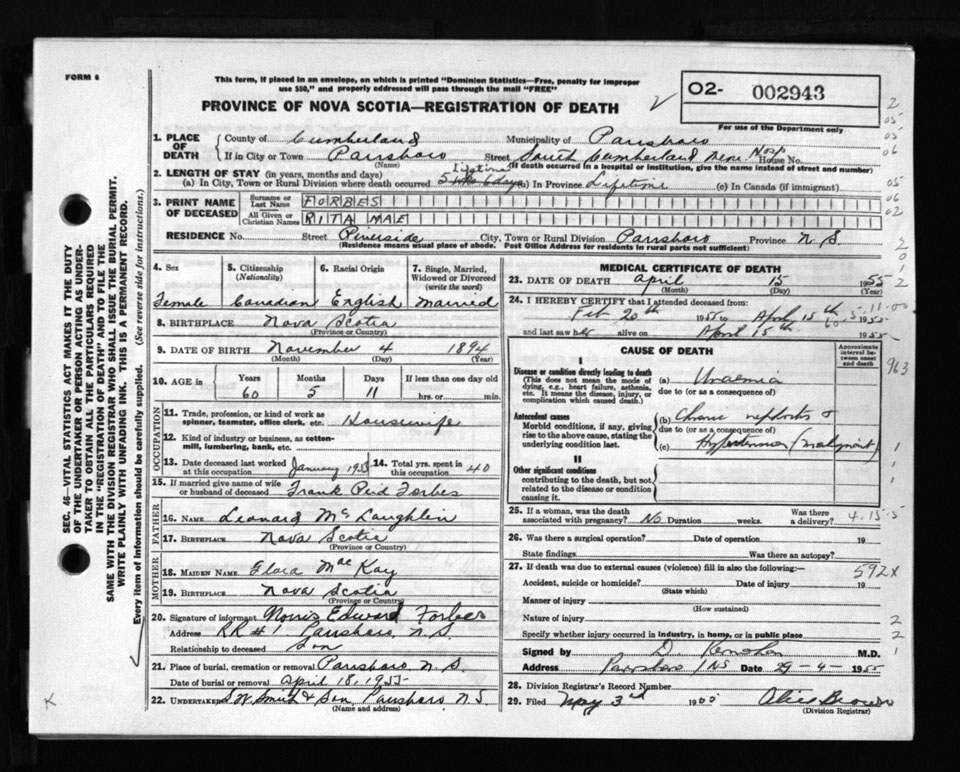 FORM 6
This form, if placed in an envelope, on which is printed "Dominion Statistics—Free, penalty for improper
use $50," and properly addressed will pass through the mail "FREE"
PROVINCE OF NOVA SCOTIA—REGISTRATION OF DEATH
O2- 002943
For use of the Department only
1. PLACE OF DEATH
County of Cumberland Municipality of Parrsboro
If in City or Town Parrsboro Street South Cumberland Mem Hosp House No.
(Name) (If death occurred in hospital or institution, give the name instead of street and number)
2. LENGTH OF STAY (in years, months and days) Lifetime
(a) In City, Town or Rural Division where death occurred days (b) In Province Lifetime (c) In Canada (if immigrant)
3. PRINT NAME OF DECEASED
Surname or Last Name FORBES
All Given or Christian Names RITA MAE
RESIDENCE No. Street Riverside City, Town or Rural Division Parrsboro Province N S.
(Residence means usual place of abode. Post Office Address for residents in rural parts not sufficient)
4. Sex Female
5. Citizenship (Nationality) Canadian
6. Racial Origin English
7. Single, Married, Widowed or Divorced (write the word) Married
8. BIRTHPLACE Nova Scotia
(Province or Country)
9. DATE OF BIRTH November 4 1894
(Month) (Day) (Year)
10. AGE in Years 60 Months 5 Days 11 If less than one day old hrs. or min.
OCCUPATION
11. Trade, profession, or kind of work as spinner, teamster, office clerk, etc. Housewife
12. Kind of industry or business, as cotton-mill, lumbering, bank, etc.
13. Date deceased last worked at this occupation January 1955 14. Total yrs. spent in this occupation 40
15. If married give name of wife or husband of deceased Frank Reid Forbes
FATHER
16. NAME Leonard McLaughlin
17. BIRTHPLACE Nova Scotia
(Province or Country)
MOTHER
18. MAIDEN NAME Flora MacKay
19. BIRTHPLACE Nova Scotia
(Province or Country)
20. Signature of informant Norris Edward Forbes
Address RR #1 Parrsboro, N.S.
Relationship to deceased Son
21. Place of burial, cremation or removal Parrsboro, N.S.
Date of burial or removal April 18, 1955
22. UNDERTAKER Smith & Son, Parrsboro, N.S.
(Name and address)
MEDICAL CERTIFICATE OF DEATH
23. DATE OF DEATH April 15 1955
(Month) (Day) (Year)
24. I HEREBY CERTIFY that I attended deceased from:
Feb 20th 1955 to April 15th 1955
and last saw her alive on April 15th 1955
CAUSE OF DEATH
Approximate interval between onset and death
I
Disease or condition directly leading to death
(This does not mean the mode of dying, e.g., heart failure, asthenia, etc. It means the disease, injury, or complication which caused death.)
(a) Uraemia
due to (or as a consequence of)
Antecedent causes
Morbid conditions, if any, giving rise to the above cause, stating the underlying condition last.
(b) Chronic
due to (or as a consequence of)
(c) Hypertension (malignant)
II
Other significant conditions
contributing to the death, but not related to the disease or condition causing it.
25. If a woman, was the death associated with pregnancy? No Duration weeks. Was there a delivery?
4.15.5
26. Was there a surgical operation? Date of operation 19
State findings Was there an autopsy?
27. If death was due to external causes (violence) fill in also the following:—
592x
Accident, suicide or homicide? Date of injury 19
(State which)
Manner of injury
(How sustained)
Nature of injury
Specify whether injury occurred in industry, in home, or in public place
Signed by D. M.D.
Address Parrsboro NS Date 29 - 4 - 1955
28. Division Registrar's Record Number
29. Filed May 3rd 1955 Alice
(Division Registrar)
SEC. 46—VITAL STATISTICS ACT MAKES IT THE DUTY
OF THE UNDERTAKER OR PERSON ACTING AS UNDER-
TAKER TO OBTAIN ALL THE PARTICULARS REQUIRED
IN THE "REGISTRATION OF DEATH" AND TO FILE THE
SAME WITH THE DIVISION REGISTRAR WHO SHALL ISSUE THE BURIAL PERMIT.
WRITE PLAINLY WITH UNFADING INK. THIS IS A PERMANENT RECORD.
Every item of Information should be carefully supplied. (See reverse side for instructions.)
K
2
05
05
06
05
06
02
2
0
1
2
963
1
1
1
2
2
1